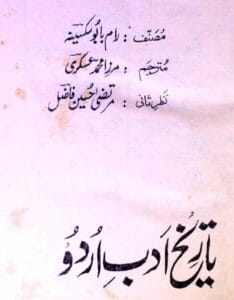 مصنف : رام بابو سکسینہ
مترجم : مرزا محمد عسکری
نظر ثانی : مرتضیٰ حسین فاضل
تاریخ ادب اردو